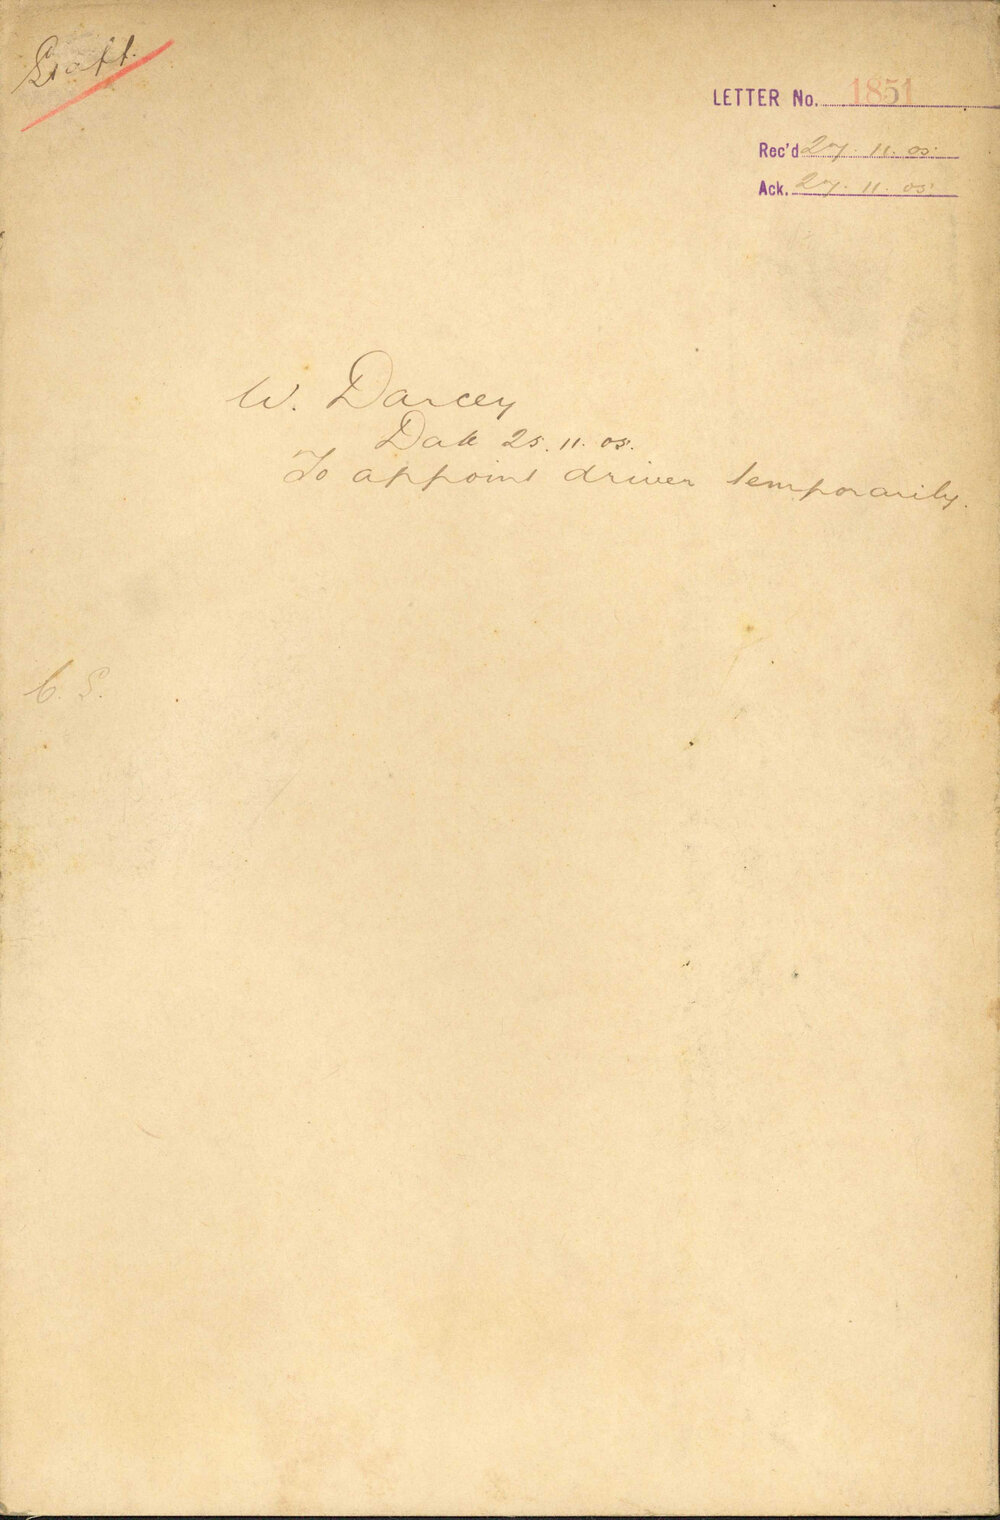 Staff.
LETTER No. 1851
Rec'd 27. 11. 05.
Ack. 27. 11. 05.
W. Darcey
Date 25. 11. 05.
To appoint driver temporarily.
C. S.